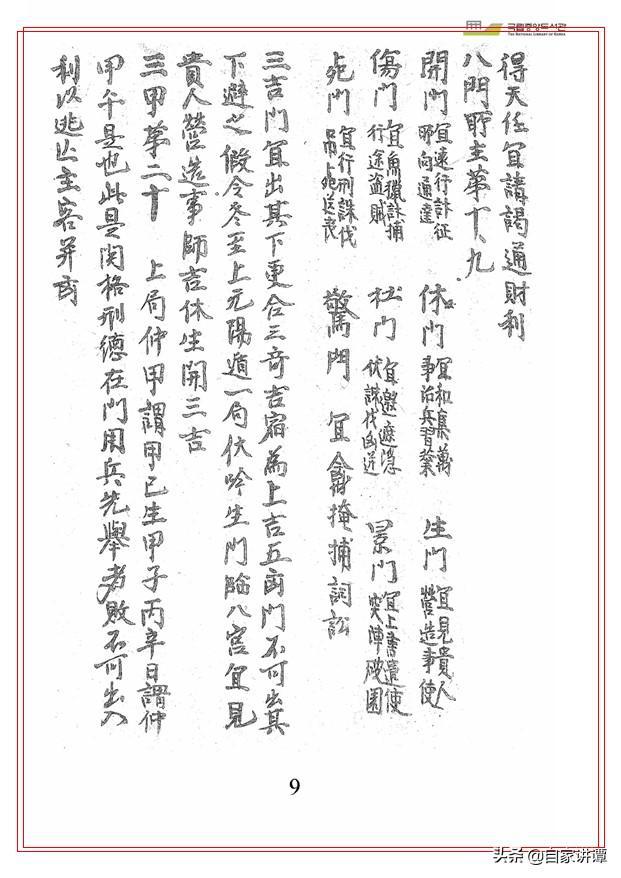 국립중앙도서관
THE NATIONAL LIBRARY OF KOREA
得天任宜請謁通財利
八門所主第十九
開門 宜遠行討征 所向通達 休門 宜和集萬 事治兵習業 生門 宜見貴人 營造事使
傷門 宜魚獵討捕 行途盜賊 杜門 宜邀遮隱 伏誅伐凶逆 景門 宜上書遣使 突陣破圍
死門 宜行刑誅伐 吊死送喪 驚門 宜 掩捕詞訟
三吉門宜出其下更合三奇吉宿為上吉五凶門不可出其
下避之假令冬至上元陽遁一局伏吟生門臨八宮宜見
貴人營造事師吉休生開三吉
三甲苐二十 上局仲甲謂甲己生甲子丙辛日謂仲
甲午是也此是関格刑德在門用兵先舉者敗不可出入
利以逃亡主客并凶
9
头条 @自家讲谭